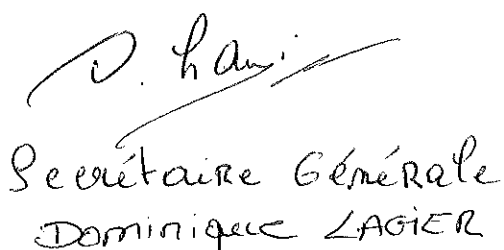 Secrétaire Générale
Dominique LAGIER